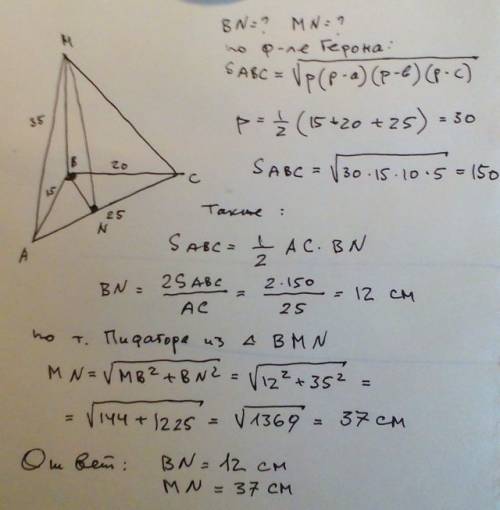 BN=? MN=?
по ф-ле Герона:
S ABC = √p(p-a)(p-b)(p-c)
p = 1/2 (15+20+25) = 30
S ABC = √30·15·10·5 = 150
Также:
S ABC = 1/2 AC·BN
BN = 2S ABC / AC = 2·150 / 25 = 12 см
по т. Пифагора из △ BMN
MN = √MB²+BN² = √12²+35² =
= √144+1225 = √1369 = 37 см
Ответ: BN = 12 см
MN = 37 см
M
35
B
20
C
15
N
25
A